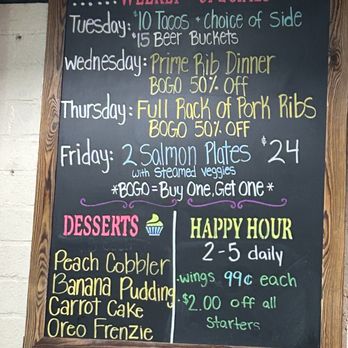 WEEKLY SPECIALS
Tuesday: $10 Tacos + choice of Side
$15 Beer Buckets
Wednesday: Prime Rib Dinner
BOGO 50% Off
Thursday: Full Rack of Pork Ribs
BOGO 50% OFF
Friday: 2 Salmon Plates $24
with Steamed veggies
*BOGO=Buy One, Get one*
DESSERTS
Peach Cobbler
Banana Pudding
Carrot Cake
Oreo Frenzie
HAPPY HOUR
2-5 daily
·wings 99¢ each
·$2.00 off all
Starters